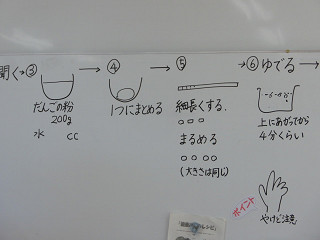 聞く→③→④→⑤→⑥ゆでる→
だんごの粉
200g
水 cc
1つにまとめる
細長くする.
まるめる
(大きさは同じ)
上にあがってから
4分くらい
ポイント
やけど注意